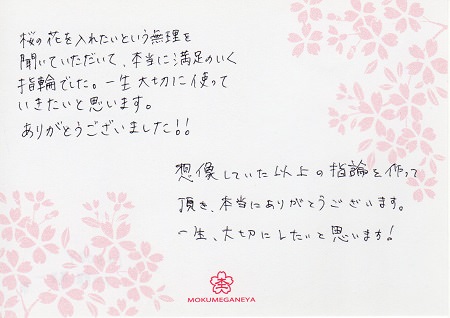 桜の花を入れたいという無理を
聞いていただいて、本当に満足のいく
指輪でした。一生大切に使って
いきたいと思います。
ありがとうございました!!
想像していた以上の指論を作って
頂き、本当にありがとうございます。
一生、大切にしたいと思います!
MOKUMEGANEYA